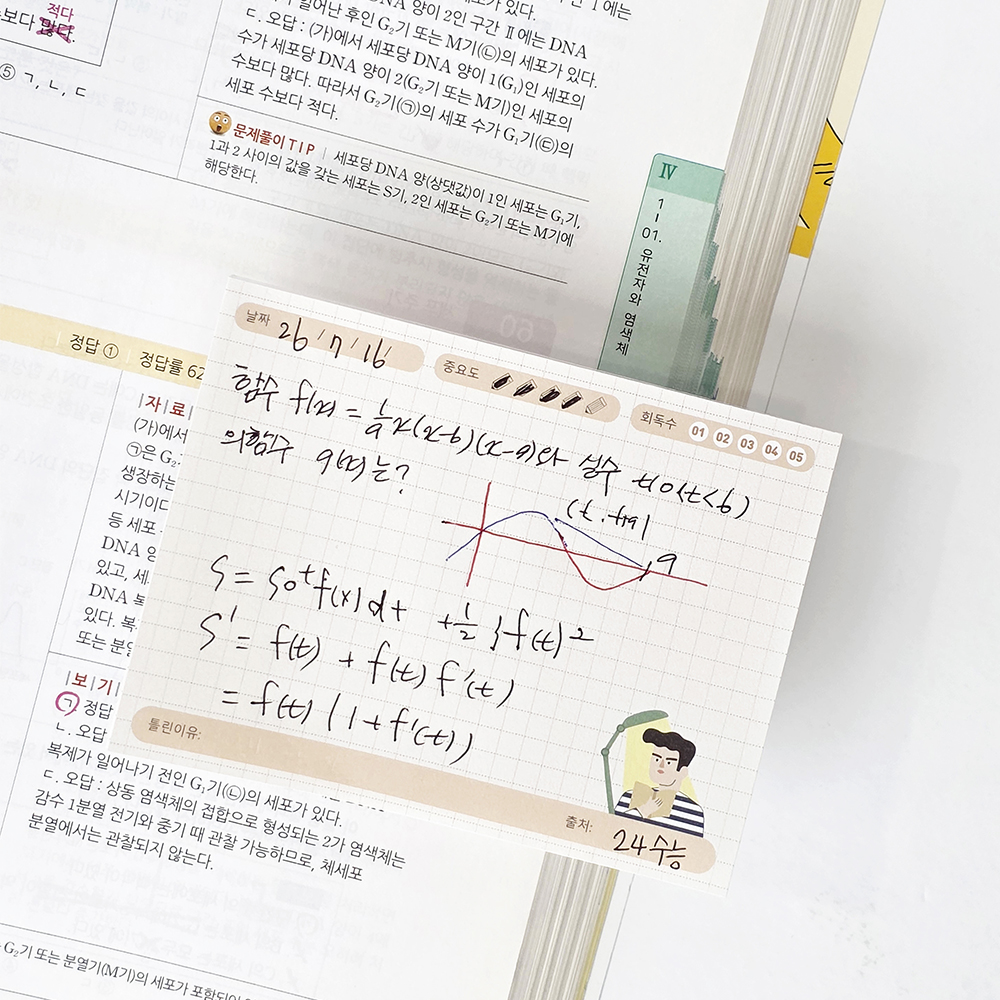 적다
보다 많다.
⑤ ㄱ, ㄴ, ㄷ
DNA 양이 2인 구간 Ⅱ에는 DNA
일어난 후인 G₂기 또는 M기(㉡)의 세포가 있다.
ㄷ. 오답 : (가)에서 세포당 DNA 양이 1(G₁)인 세포의
수가 세포당 DNA 양이 2(G₂기 또는 M기)인 세포의
수보다 많다. 따라서 G₂기(㉠)의 세포 수가 G₁기(㉢)의
세포 수보다 적다.
문제풀이 TIP | 세포당 DNA 양(상댓값)이 1인 세포는 G₁기,
1과 2 사이의 값을 갖는 세포는 S기, 2인 세포는 G₂기 또는 M기에
해당한다.
Ⅳ
1
01. 유전자와 염색체
정답 ① | 정답률 62
|자|료|
(가)에서
㉠은 G₂
생장하는
시기이다
등 세포
DNA 양
있고, 세
DNA 복
있다. 복
또는 분열
|보|기|
ㄱ 정답
ㄴ. 오답
복제가 일어나기 전인 G₁기(㉡)의 세포가 있다.
ㄷ. 오답 : 상동 염색체의 접합으로 형성되는 2가 염색체는
감수 1분열 전기와 중기 때 관찰 가능하므로, 체세포
분열에서는 관찰되지 않는다.
G₂기 또는 분열기(M기)의 세포가 포함되어
날짜 26'7'16'
중요도
회독수 01 02 03 04 05
함수 f(x) = 1/9 x(x-6)(x-9)와 실수 t(0<t<6)
의 함수 g(x)는?
(t, f(t))
9
S = ∫0^t f(x)dt + 1/2 {f(t)}²
S' = f(t) + f(t) f'(t)
= f(t) (1 + f'(t))
틀린이유:
출처: 24수능